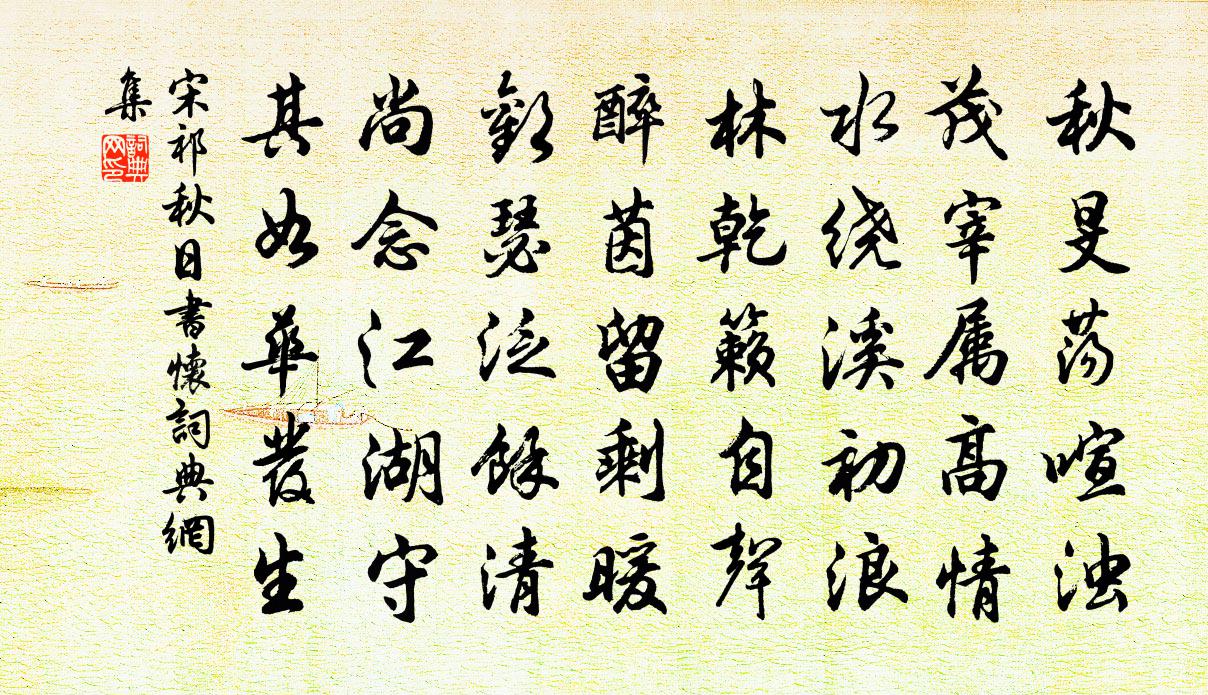 秋旻荡喧浊
茂宰属高情
水绕溪初浪
林乾籟自聲
醉茵留剩暖
歡瑟泛餘清
尚念江湖守
其如華發生
宋祁秋日書懷詞典網
集
詞典网印